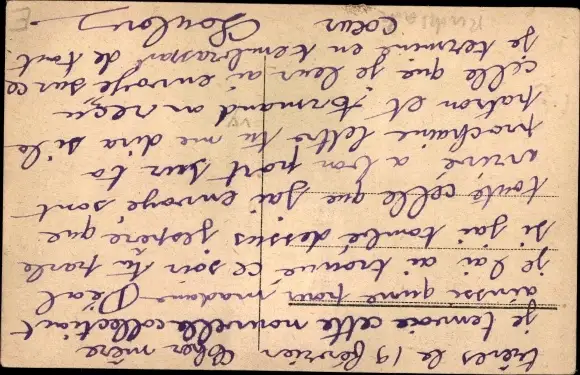 trèves le 19 février Cher mère
je t'envoie cette nouvelle collection
ainsi qu'une pour madame Déal
je l'ai ai trouvé ce soir tu parle
si j'ai tombé dessus j'espère que
toute celle que j'ai envoyé sont
arrivé a bon port sur ta
prochaine lettre tu me dira si le
patron et Armand on reçu
celle que je leur ai envoyé sur ce
je termine en t'embrassant de tout
Coeur Loulou